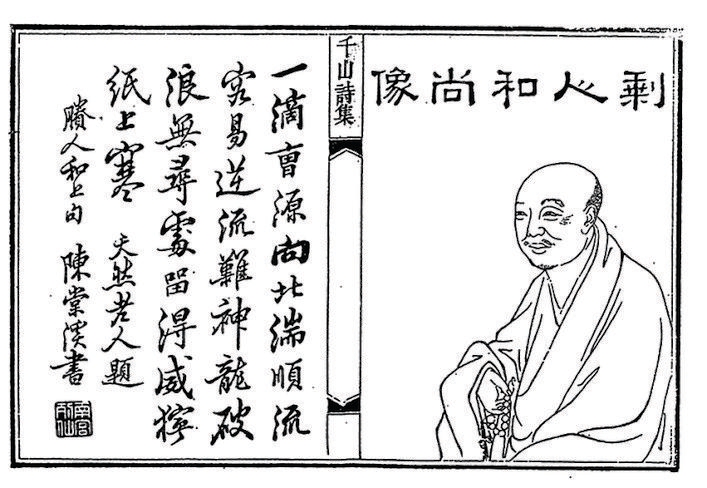 剩人和尚像
千山詩集
一滴曹源向北湍順流
容易逆流難神龍破
浪無尋處留得威獰
紙上寒 天然老人題
賸人和上 陳棠 書